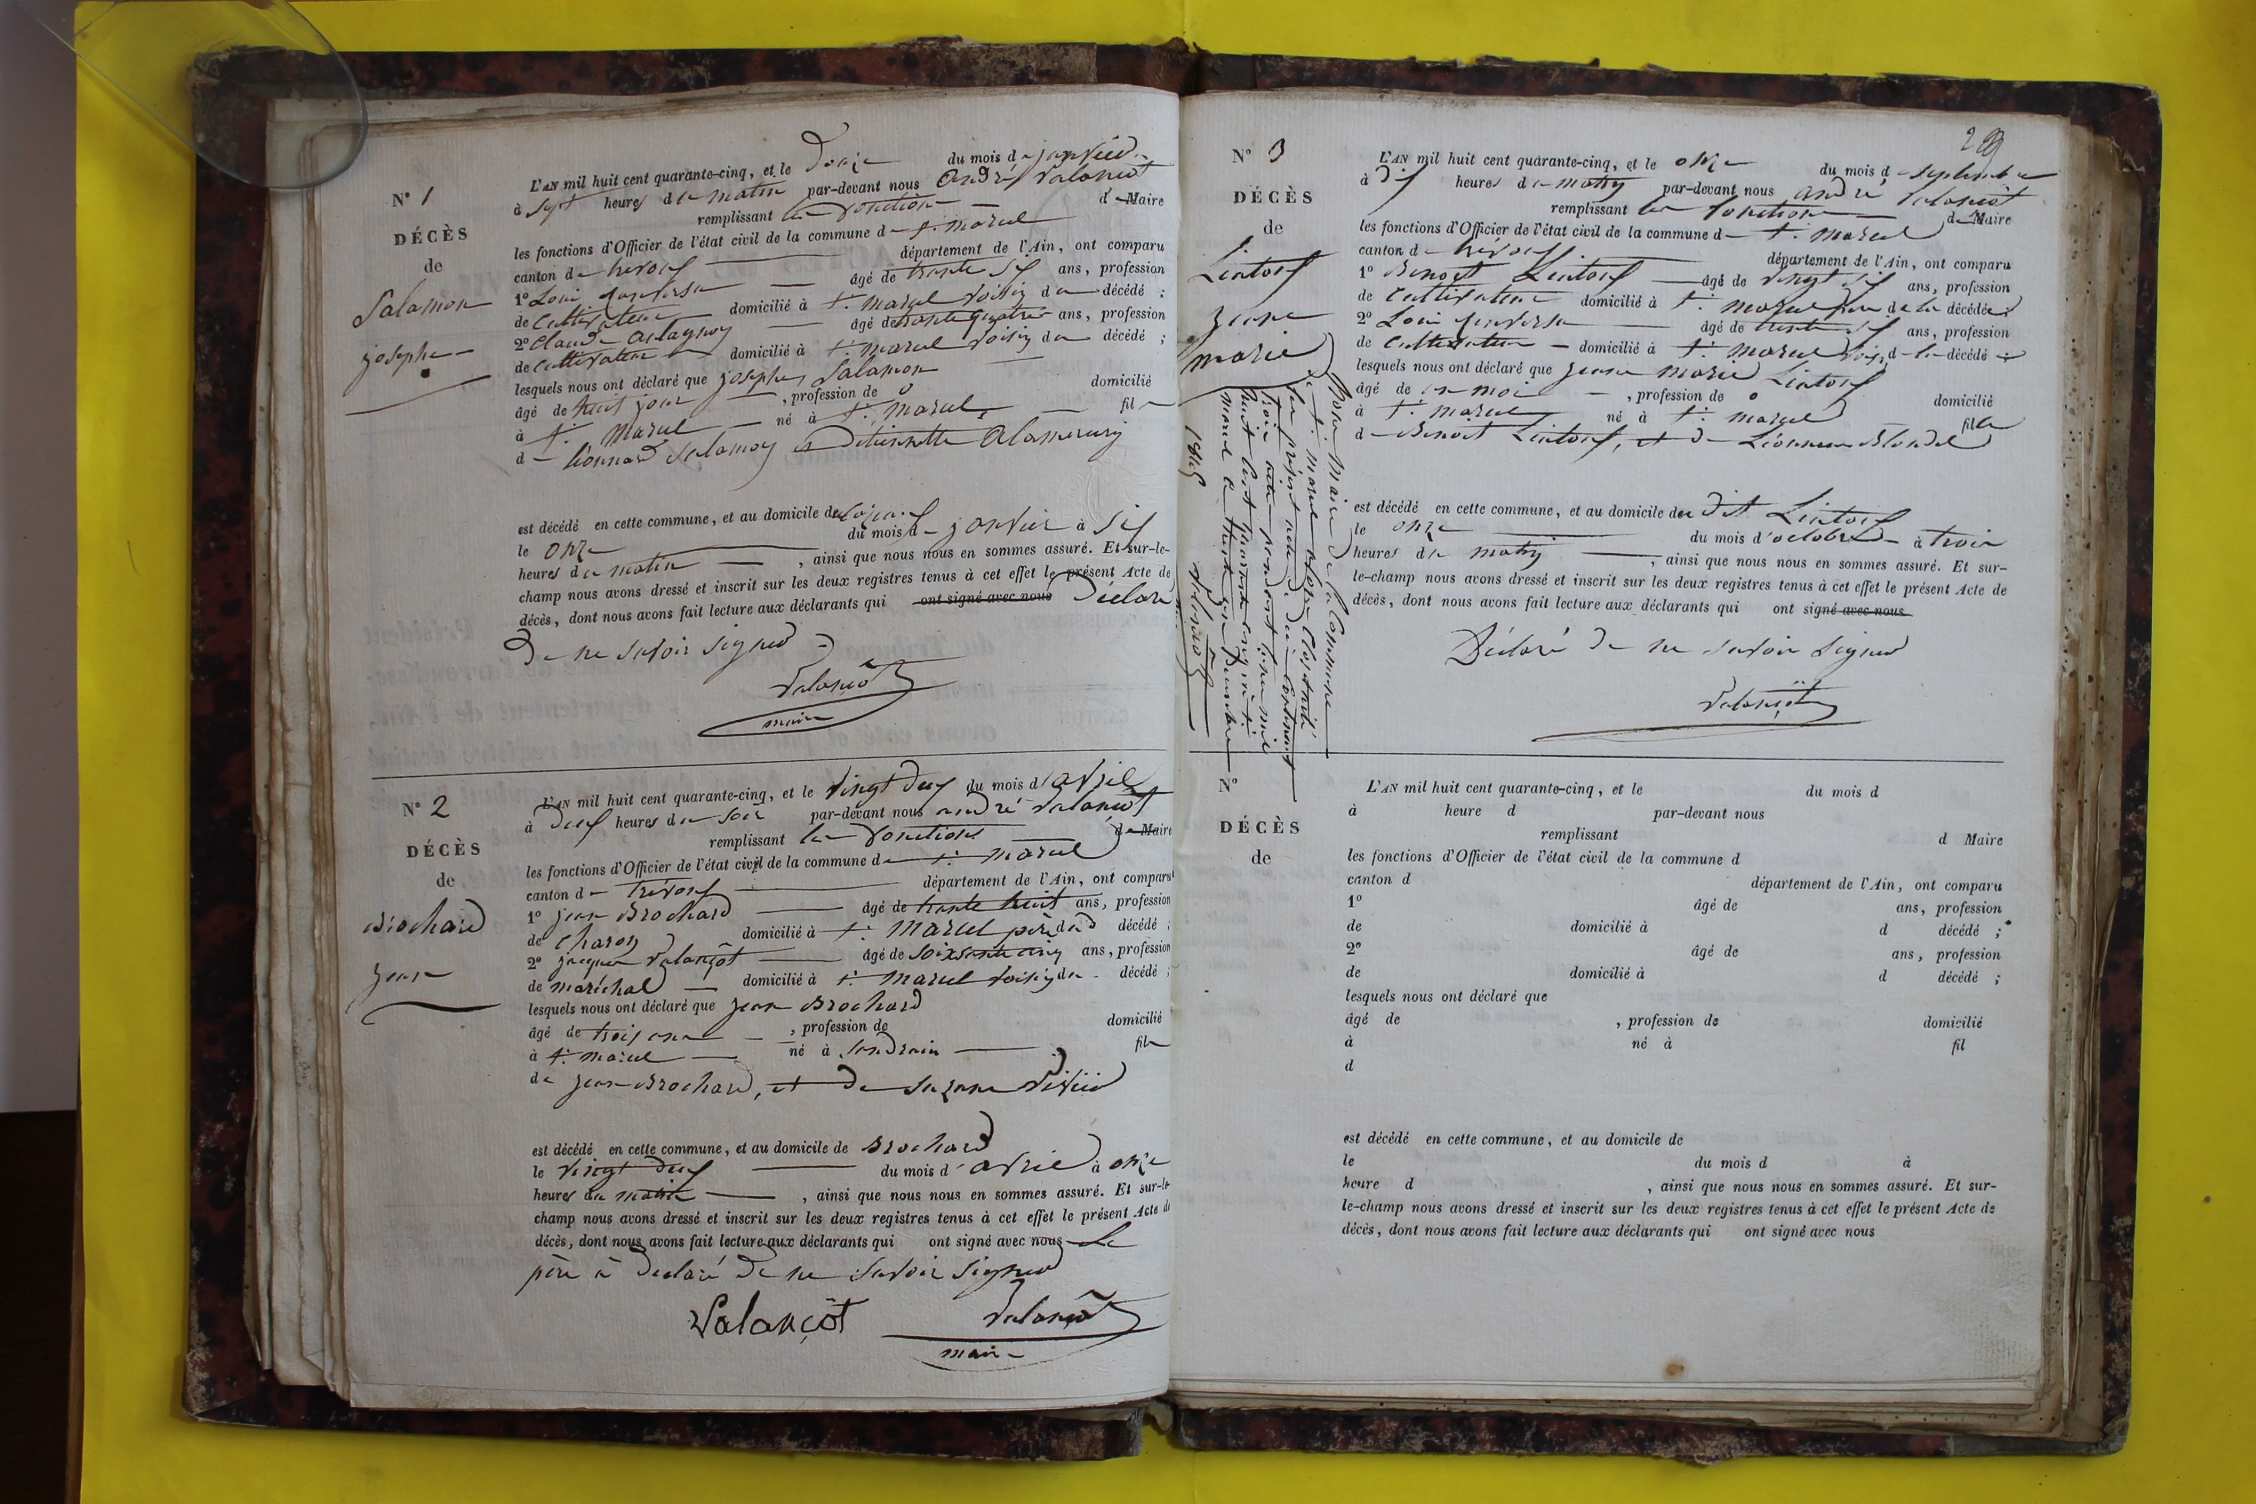 N° 1
DÉCÈS
de
Salamon
josephe
L'AN mil huit cent quarante-cinq, et le Douze du mois de janvier
à sept heures du matin par-devant nous andré Valançot
remplissant les fonction de Maire
les fonctions d'Officier de l'état civil de la commune de st marcel
canton de trévoux département de l'Ain, ont comparu
1° Loui âgé de trante six ans, profession
de Cultivateur domicilié à st marcel voisin du décédé ;
2° Claude âgé de trante quatre ans, profession
de cultivateur domicilié à st marcel voisin du décédé ;
lesquels nous ont déclaré que josephe Salamon
âgé de huit jour , profession de 0 domicilié
à st marcel né à st marcel fil
de Léonnard Salamon et
est décédé en cette commune, et au domicile de
le onze du mois de janvier à six
heures du matin , ainsi que nous nous en sommes assuré. Et sur-le-
champ nous avons dressé et inscrit sur les deux registres tenus à cet effet le présent Acte de
décès, dont nous avons fait lecture aux déclarants qui ont signé avec nous Déclaré
de ne savoir signer
Valançot
maire
N° 2
DÉCÈS
de
Brochard
jean
L'AN mil huit cent quarante-cinq, et le vingt deux du mois d'avril
à deux heures du soir par-devant nous andré Valançot
remplissant les fonctions de Maire
les fonctions d'Officier de l'état civil de la commune de st marcel
canton de trévoux département de l'Ain, ont comparu
1° jean Brochard âgé de trante huit ans, profession
de Charon domicilié à st marcel père du décédé ;
2° jacques Valançot âgé de soixsante cinq ans, profession
de maréchal domicilié à st marcel voisin du décédé ;
lesquels nous ont déclaré que jean Brochard
âgé de trois ans , profession de domicilié
à st marcel né à Sandrain fil
de jean Brochard, et de Suzane
est décédé en cette commune, et au domicile de Brochard
le vingt deux du mois d'avril à onze
heures du matin , ainsi que nous nous en sommes assuré. Et sur-le-
champ nous avons dressé et inscrit sur les deux registres tenus à cet effet le présent Acte de
décès, dont nous avons fait lecture aux déclarants qui ont signé avec nous Le
père a déclaré de ne savoir signer
Valançot Valançot
maire
N° 3
DÉCÈS
de
Lintouf
jeane
marie
L'AN mil huit cent quarante-cinq, et le onze du mois de septembre
à dix heures du matin par-devant nous andré Valançot
remplissant les fonction de Maire
les fonctions d'Officier de l'état civil de la commune de st marcel
canton de trévoux département de l'Ain, ont comparu
1° Benoit Lintouf âgé de vingt six ans, profession
de cultivateur domicilié à st marcel père de la décédée ;
2° Loui âgé de trente six ans, profession
de Cultivateur domicilié à st marcel voisin de la décédé ;
lesquels nous ont déclaré que jeane marie Lintouf
âgé de un moi , profession de 0 domicilié
à st marcel né à st marcel fille
de Benoit Lintouf, et de Léonnne Blondel
est décédé en cette commune, et au domicile du dit Lintouf
le onze du mois d'octobre à trois
heures du matin , ainsi que nous nous en sommes assuré. Et sur-
le-champ nous avons dressé et inscrit sur les deux registres tenus à cet effet le présent Acte de
décès, dont nous avons fait lecture aux déclarants qui ont signé avec nous
Déclaré de ne savoir signer
Valançot
Nous Maire de la Commune
de st marcel avons Clos
le présent acte de décès contenant
trois acte pendant l'année mil
huit cent quarante cinq
marcel le trente un décembre
1845
Valançot
N°
DÉCÈS
de
L'AN mil huit cent quarante-cinq, et le du mois d
à heure d par-devant nous
remplissant d Maire
les fonctions d'Officier de l'état civil de la commune d
canton d département de l'Ain, ont comparu
1° âgé de ans, profession
de domicilié à d décédé ;
2° âgé de ans, profession
de domicilié à d décédé ;
lesquels nous ont déclaré que
âgé de , profession de domicilié
à né à fil
d
est décédé en cette commune, et au domicile de
le du mois d à
heure d , ainsi que nous nous en sommes assuré. Et sur-
le-champ nous avons dressé et inscrit sur les deux registres tenus à cet effet le présent Acte de
décès, dont nous avons fait lecture aux déclarants qui ont signé avec nous